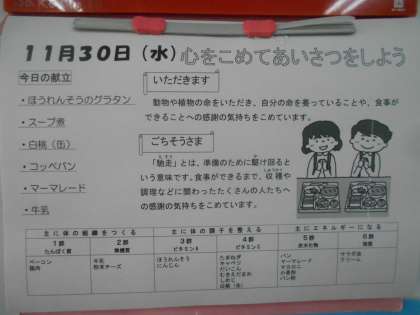 11月30日（水）心をこめてあいさつをしよう
今日の献立
・ほうれんそうのグラタン
・スープ煮
・白桃（缶）
・コッペパン
・マーマレード
・牛乳
いただきます
動物や植物の命をいただき、自分の命を養っていることや、食事が
できることへの感謝の気持ちをこめています。
ごちそうさま
「馳走」とは、準備のために駆け回ると
いう意味です。食事ができるまで、収穫や
調理などに関わったたくさんの人たちへ
の感謝の気持ちをこめています。
主に体の組織をつくる 主に体の調子を整える 主にエネルギーになる
1群 2群 3群 4群 5群 6群
たんぱく質 無機質 ビタミンA ビタミンC 炭水化物 脂質
ベーコン 牛乳 ほうれんそう たまねぎ パン サラダ油
鶏肉 粉末チーズ にんじん キャベツ マーマレード クリーム
だいこん マカロニ
むきえだまめ 小麦粉
しめじ パン粉
白桃（缶）